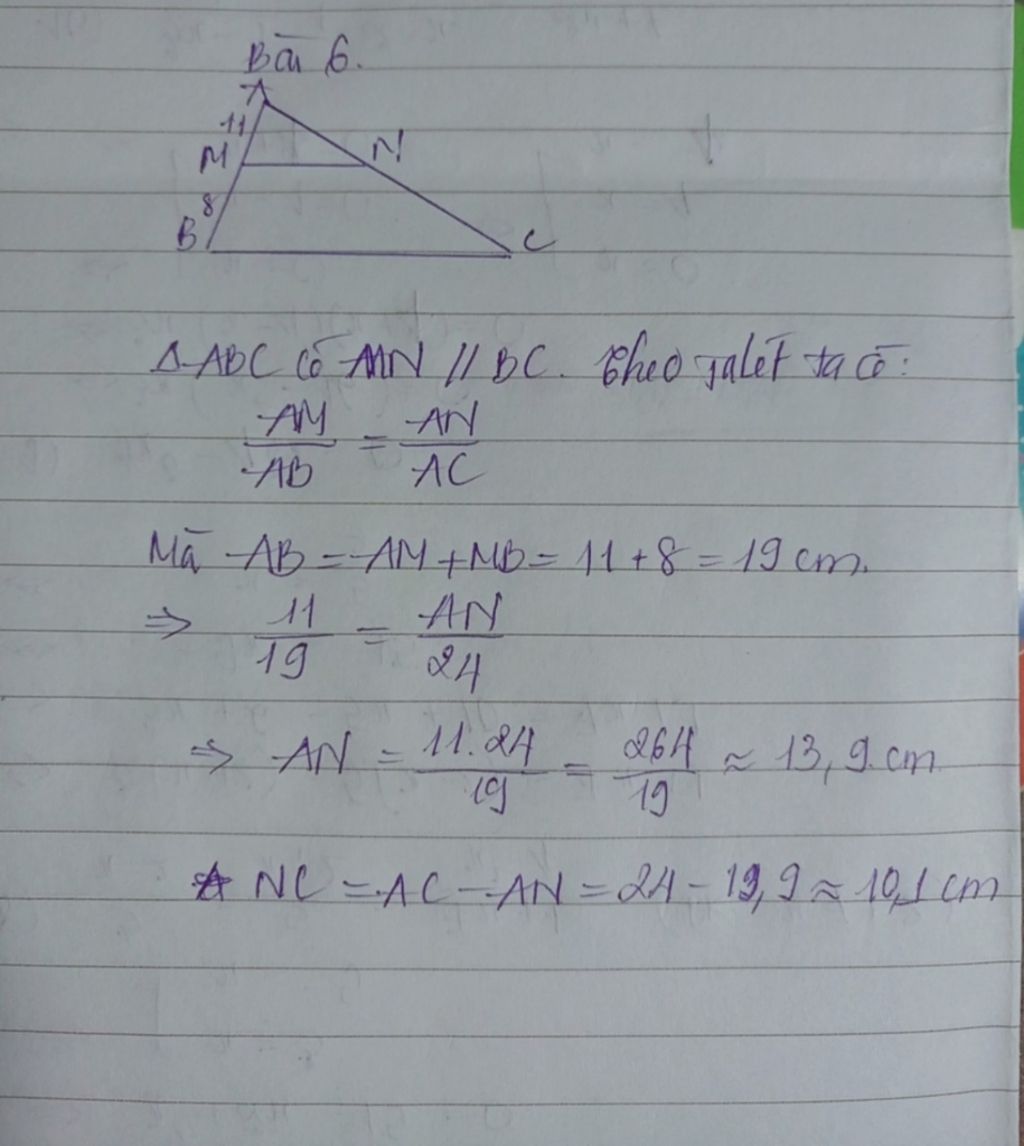 Bài 6.
A
11
M N
8
B C
Δ ABC có MN // BC. Theo Talet ta có:
AM/AB = AN/AC
Mà AB = AM + MB = 11 + 8 = 19 cm.
⇒ 11/19 = AN/24
⇒ AN = 11.24/19 = 264/19 ≈ 13,9 cm
NC = AC - AN = 24 - 13,9 ≈ 10,1 cm